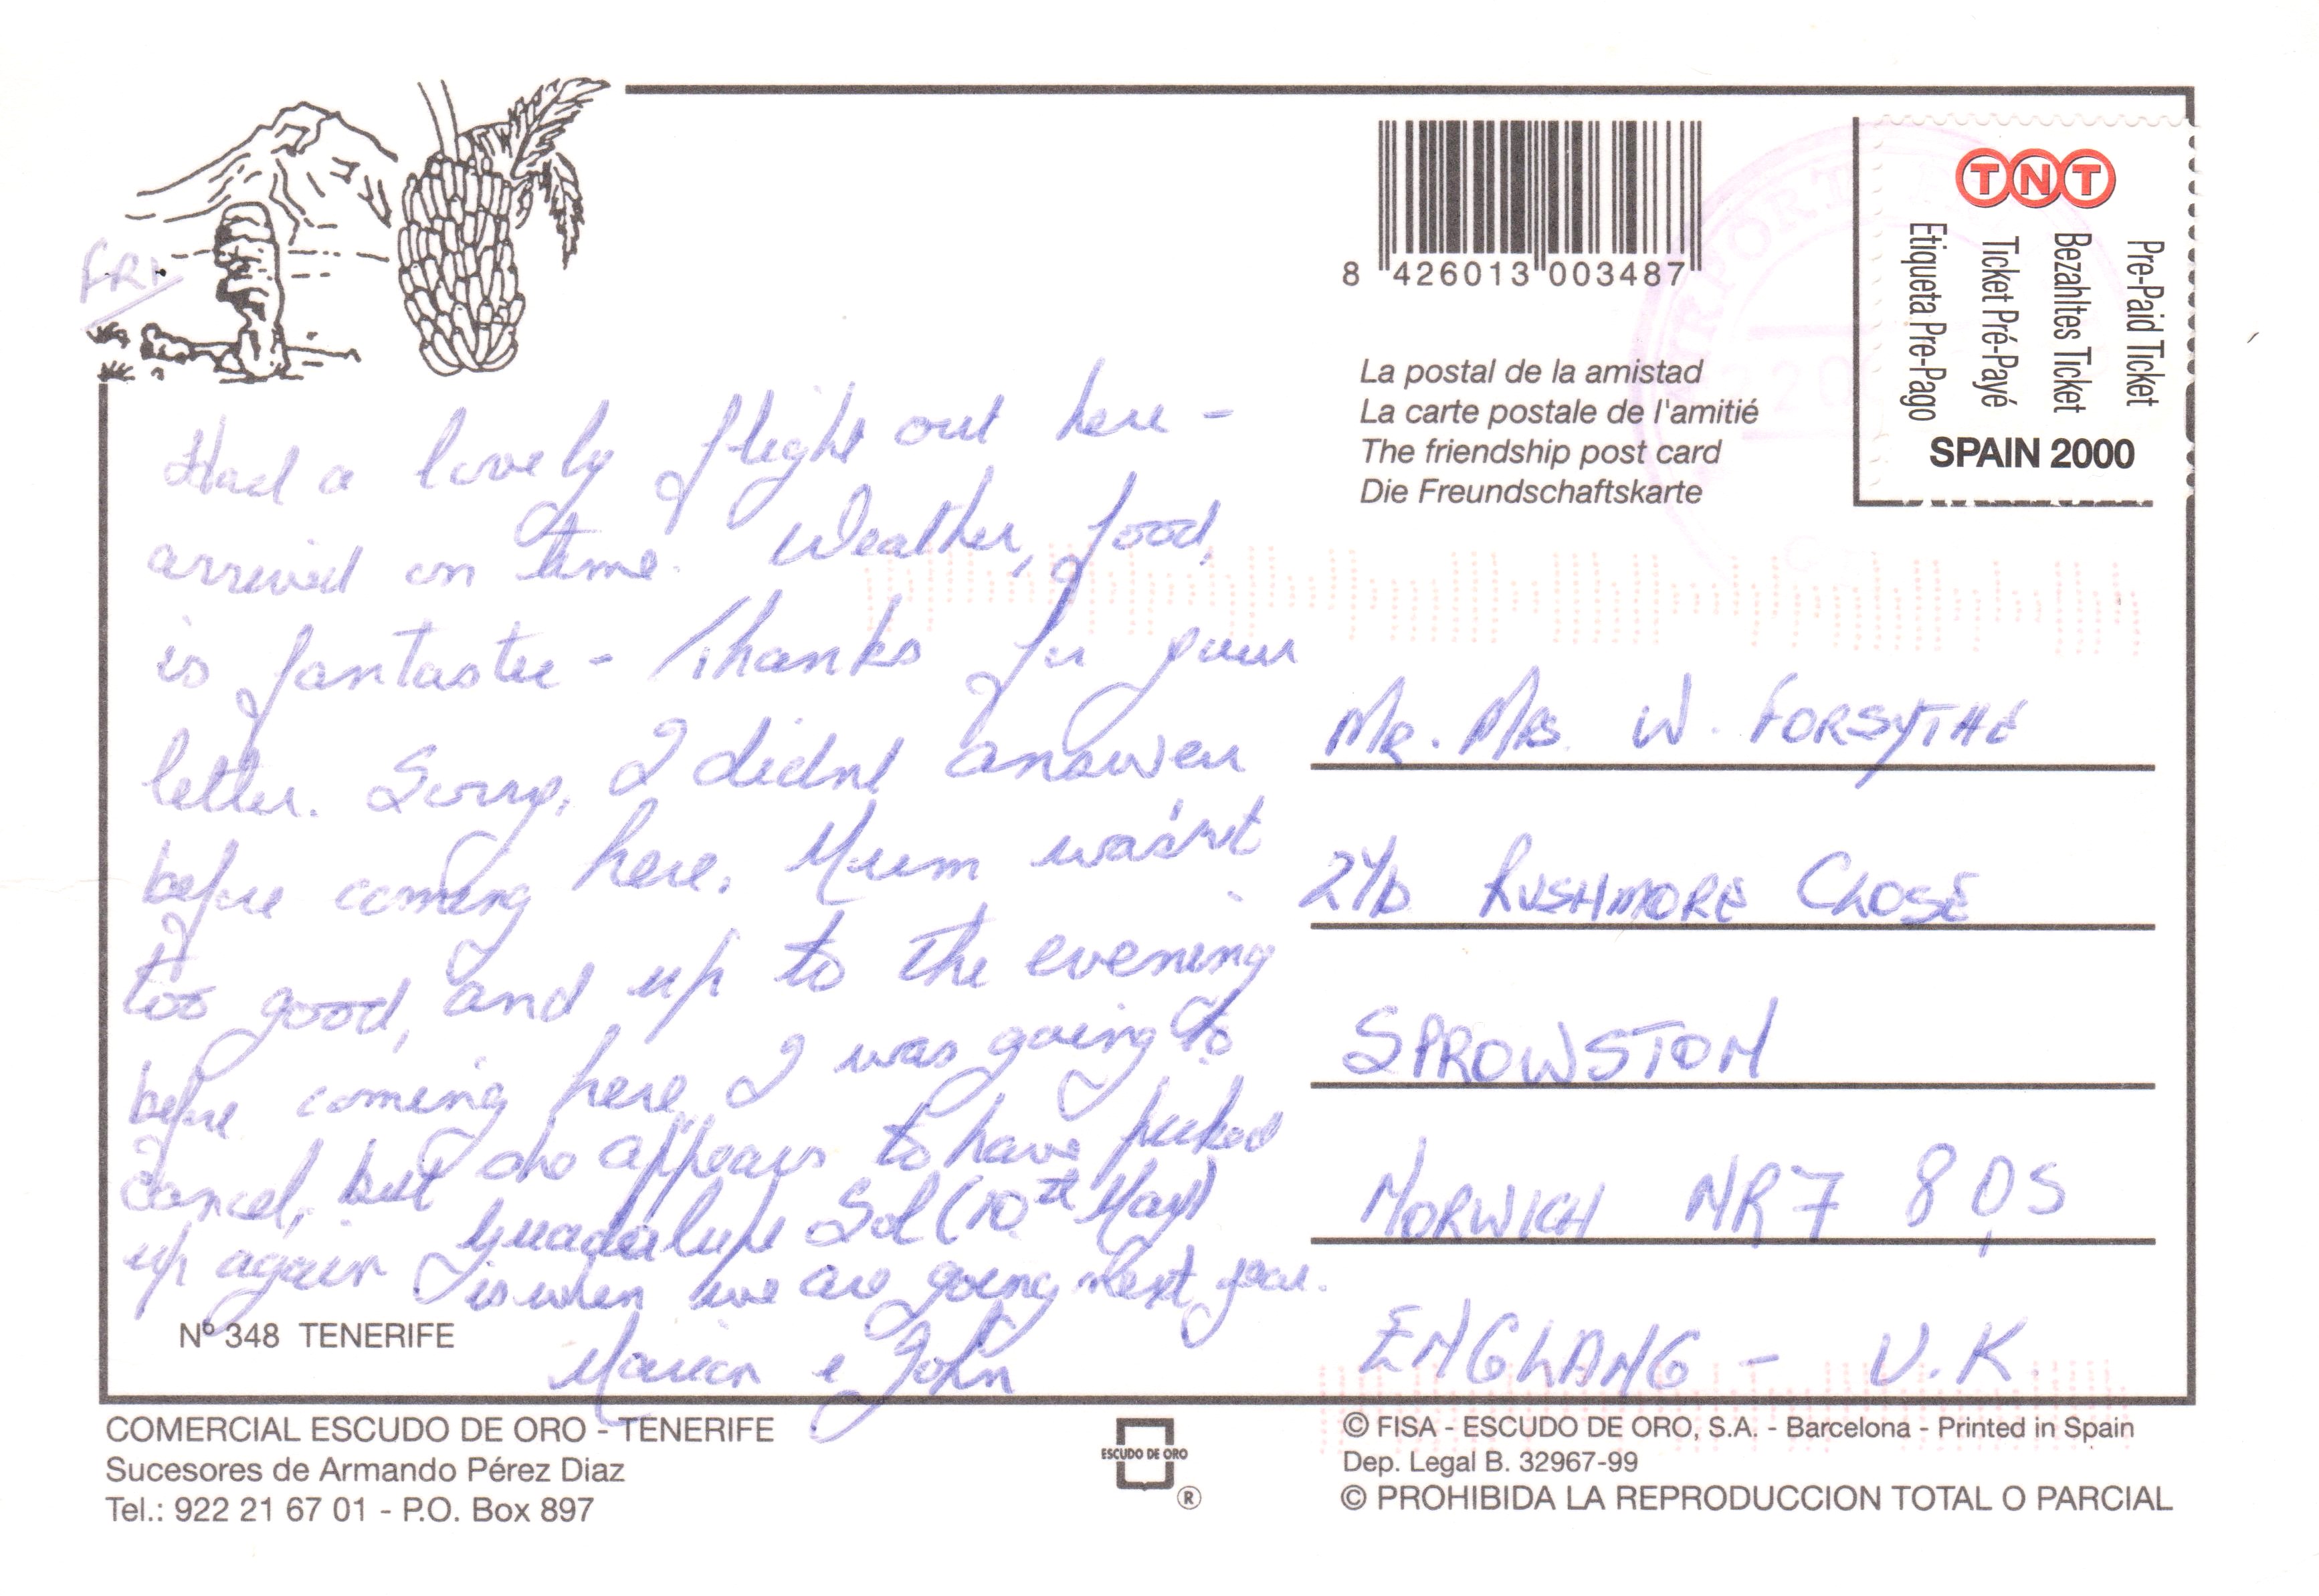 FRI
Had a lovely flight out here -
arrived on time. Weather, food,
is fantastic - Thanks for your
letter. Sorry, I didnt answer
before coming here. Mum wasn't
too good, and up to the evening
before coming here, I was going to
cancel, but she appears to have picked
up again. Guadalupe Sol (10th May)
is when we are going next year.
Marian & John
Nº 348 TENERIFE
COMERCIAL ESCUDO DE ORO - TENERIFE
Sucesores de Armando Pérez Diaz
Tel.: 922 21 67 01 - P.O. Box 897
ESCUDO DE ORO
®
8 426013 003487
La postal de la amistad
La carte postale de l'amitié
The friendship post card
Die Freundschaftskarte
TNT
Pre-Paid Ticket
Bezahltes Ticket
Ticket Pré-Payé
Etiqueta Pre-Pago
SPAIN 2000
MR. MRS. W. FORSYTHE
RUSHMORE CLOSE
SPROWSTON
NORWICH NR7 8QS
ENGLANG - U.K.
© FISA - ESCUDO DE ORO, S.A. - Barcelona - Printed in Spain
Dep. Legal B. 32967-99
© PROHIBIDA LA REPRODUCCION TOTAL O PARCIAL